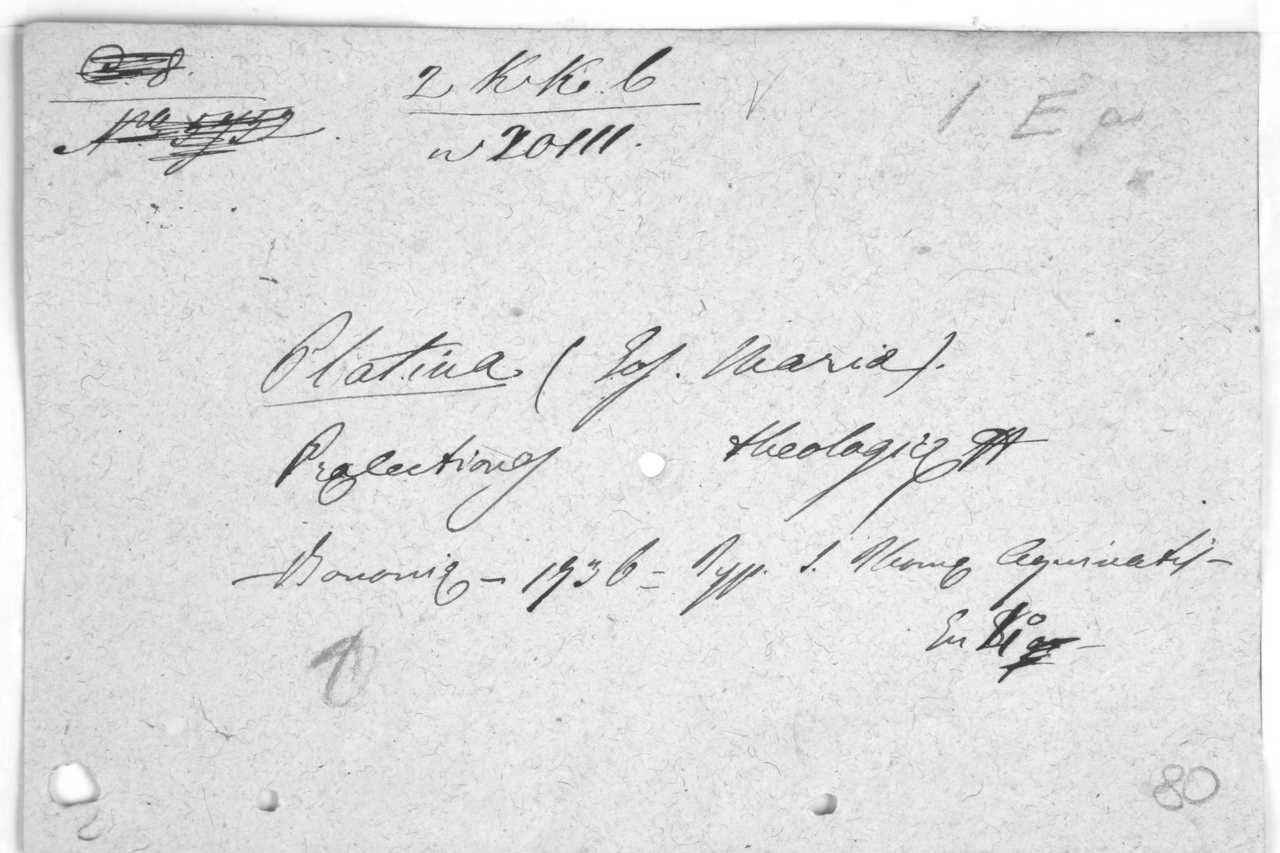 2 K K. 6
n 20111.
1 E a
Platina (Jos. Maria).
Prælectiones theologicæ
Bononiæ - 1736 - Typ. S. Thomæ Aquinatis -
En
80